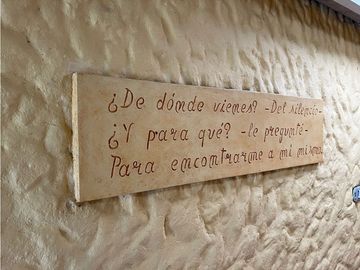 ¿De dónde vienes? -Del silencio-
¿Y para qué? -le pregunté-
Para encontrarme a mi mismo.